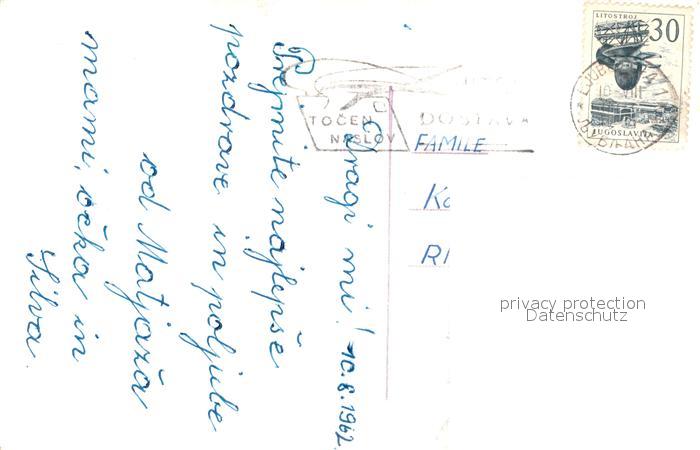 Dragi mi! 10.8.1962
Prejmite najlepše
pozdrave in poljube
od Matjaža
mami, očka in
Silva.
TOČEN
NASLOV
DOSTAVA
FAMILE
Ko
RI
LITOSTROJ
30
JUGOSLAVIJA
privacy protection
Datenschutz